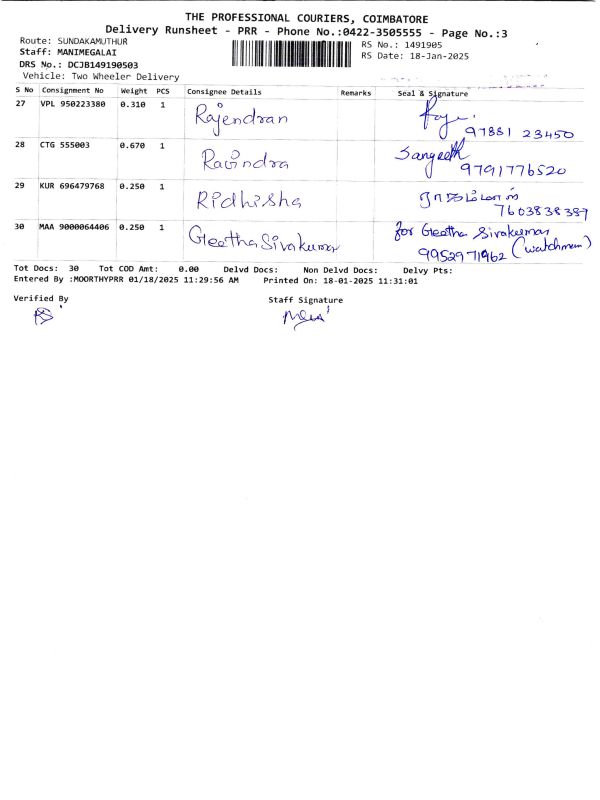 THE PROFESSIONAL COURIERS, COIMBATORE
Delivery Runsheet - PRR - Phone No.:0422-3505555 - Page No.:3
Route: SUNDAKAMUTHUR
RS No.: 1491905
Staff: MANIMEGALAI
RS Date: 18-Jan-2025
DRS No.: DCJB149190503
Vehicle: Two Wheeler Delivery
S No Consignment No Weight PCS Consignee Details Remarks Seal & Signature
27 VPL 950223380 0.310 1 Rajendran 97881 23450
28 CTG 555003 0.670 1 Ravindra Sangeeth 9791776520
29 KUR 696479768 0.250 1 Ridhisha 7603838387
30 MAA 9000064406 0.250 1 Geetha Sivakumar for Geetha Sivakumar
9952971962 (watchman)
Tot Docs: 30 Tot COD Amt: 0.00 Delvd Docs: Non Delvd Docs: Delvy Pts:
Entered By :MOORTHYPRR 01/18/2025 11:29:56 AM Printed On: 18-01-2025 11:31:01
Verified By Staff Signature